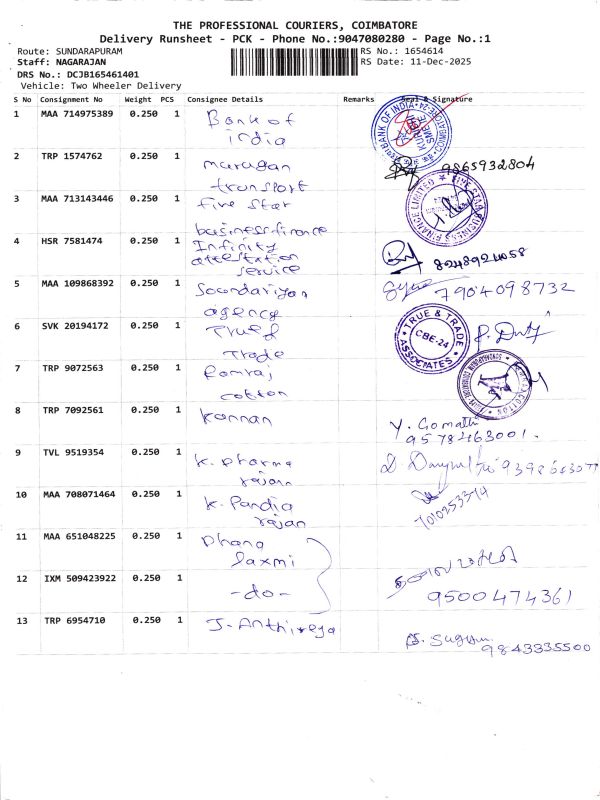 THE PROFESSIONAL COURIERS, COIMBATORE
Delivery Runsheet - PCK - Phone No.:9047080280 - Page No.:1
Route: SUNDARAPURAM
RS No.: 1654614
Staff: NAGARAJAN
RS Date: 11-Dec-2025
DRS No.: DCJB165461401
Vehicle: Two Wheeler Delivery
S No Consignment No Weight PCS Consignee Details Remarks Seal & Signature
1 MAA 714975389 0.250 1 Bank of
india
BANK OF INDIA
2 TRP 1574762 0.250 1 murugan 9865932804
transport
3 MAA 713143446 0.250 1 five star
business finance
FIVE STAR BUSINESS FINANCE LIMITED
4 HSR 7581474 0.250 1 Infinity
attestation
service
8248921058
5 MAA 109868392 0.250 1 Soondariyan 7904098732
agency
6 SVK 20194172 0.250 1 True &
Trade
TRUE & TRADE ASSOCIATES
CBE-24
7 TRP 9072563 0.250 1 Ramraj
cotton
8 TRP 7092561 0.250 1 Kannan
Y. Gomathi
9578463001.
9 TVL 9519354 0.250 1 K. Dharma
rajan
10 MAA 708071464 0.250 1 K. Pandia
rajan
7010253374
11 MAA 651048225 0.250 1 Dhana
laxmi
12 IXM 509423922 0.250 1 -do-
9500474361
13 TRP 6954710 0.250 1 J. Anthireya
9843335500